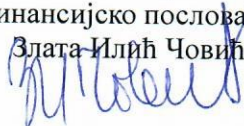 инансијско послова
Злата Илић Човић